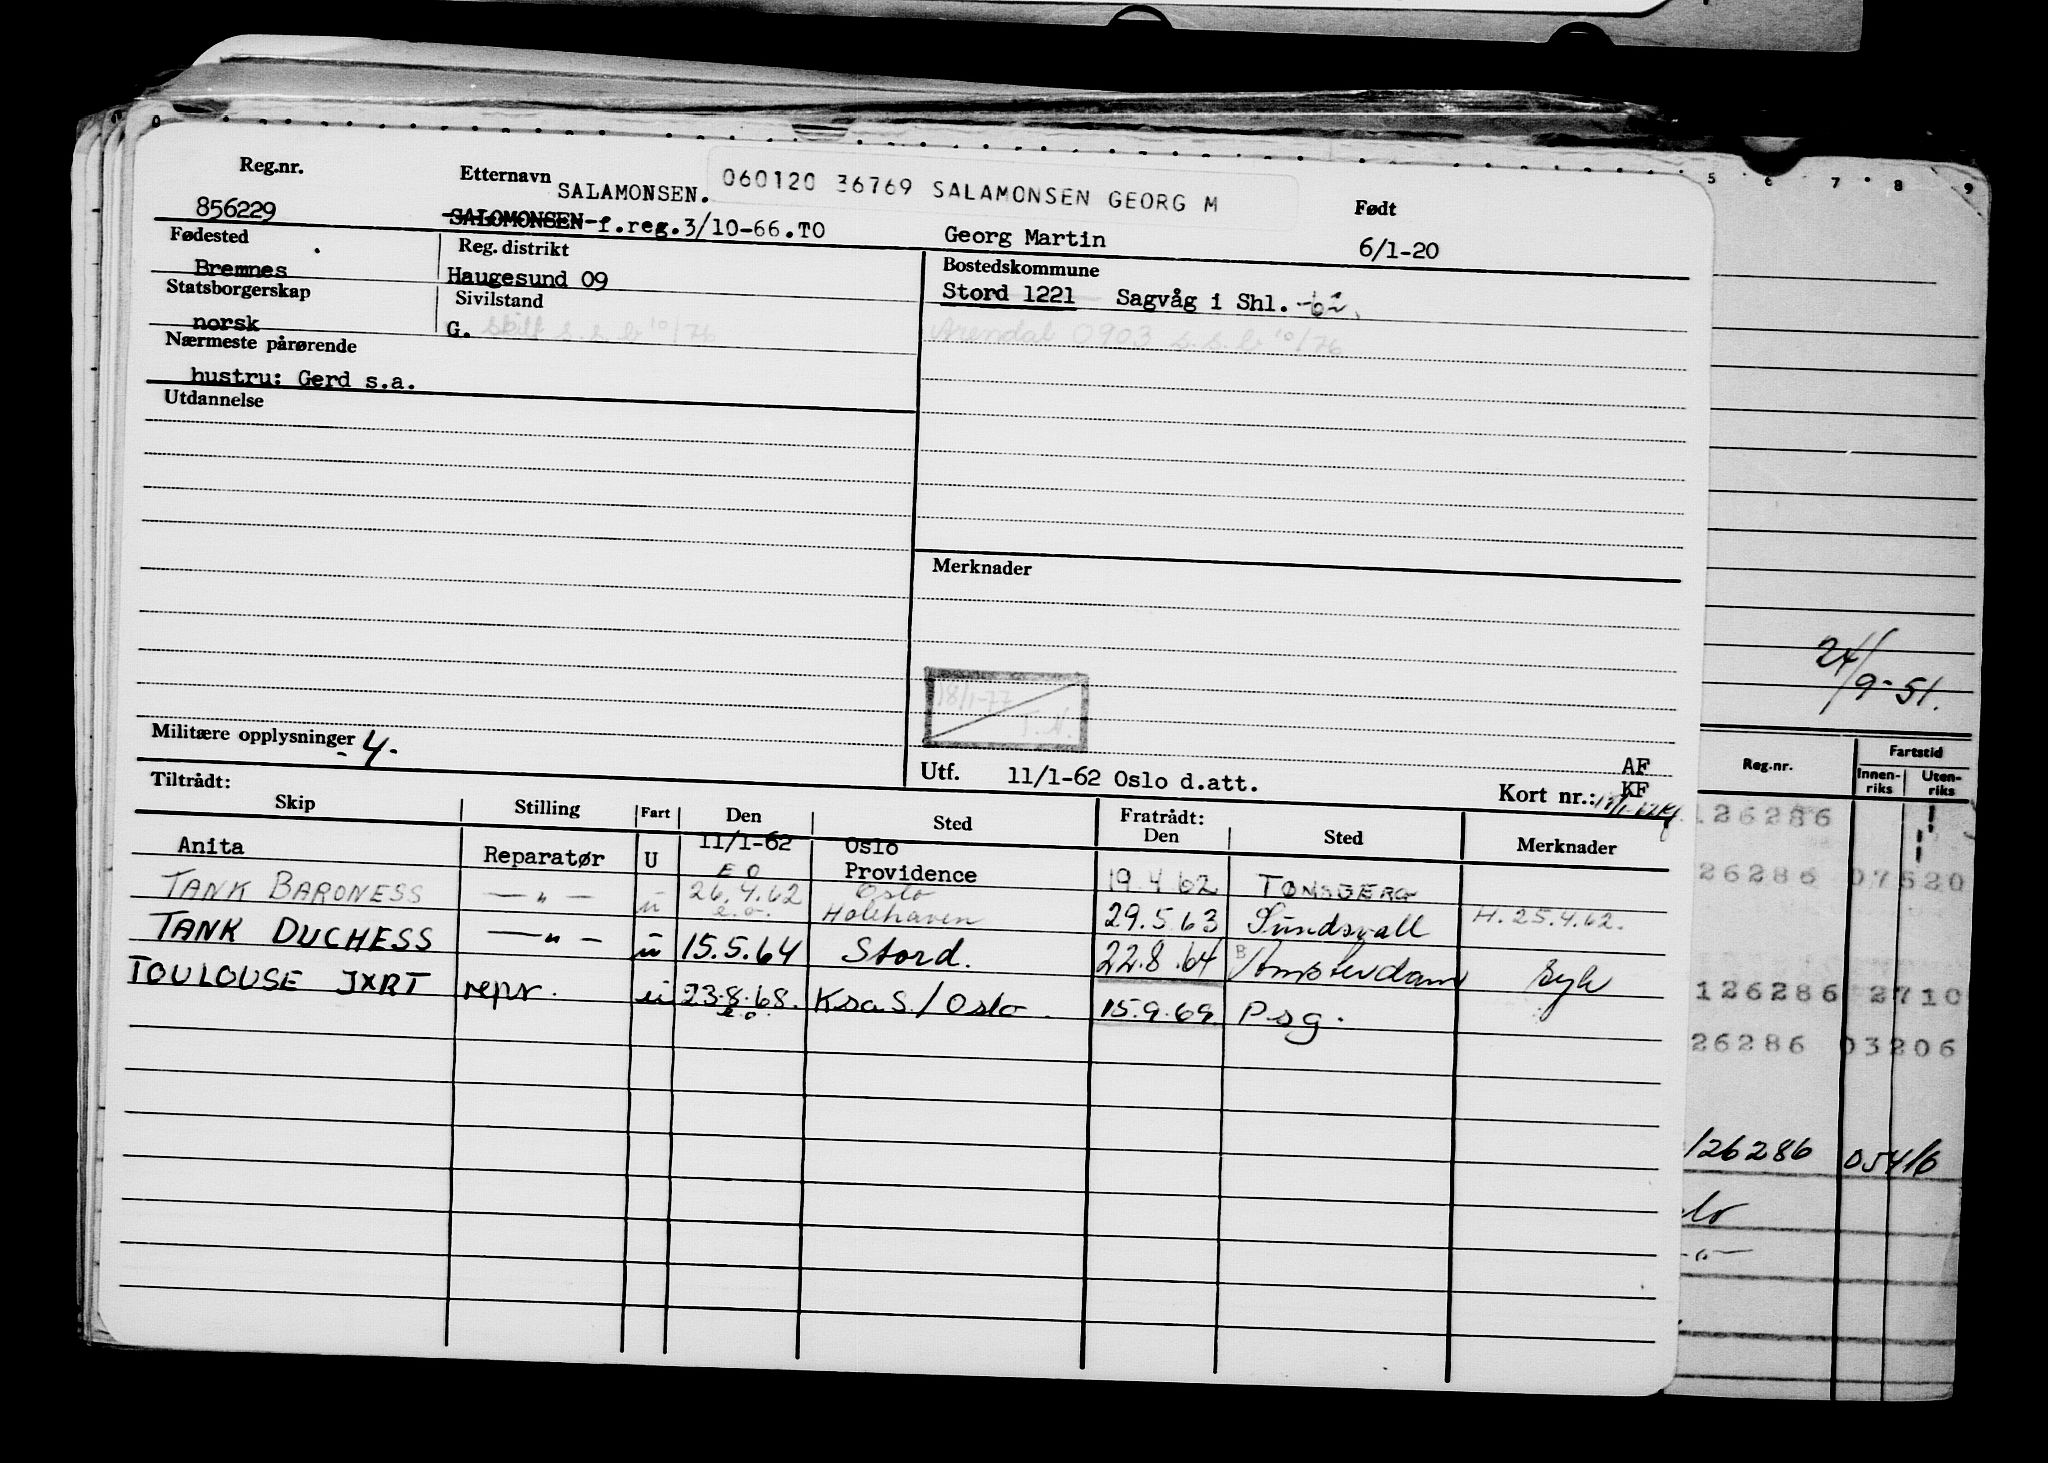 Reg.nr. Etternavn 060120 36769 SALAMONSEN GEORG M Født
856229 SALAMONSEN.
SALOMONSEN-f.reg.3/10-66.TO Georg Martin 6/1-20
Fødested Reg. distrikt Bostedskommune
Bremnes Haugesund 09 Stord 1221 Sagvåg i Shl. -62.
Statsborgerskap Sivilstand
norsk G. Skilt s.s.b 10/76 Arendal 0903 s.s.b 10/76
Nærmeste pårørende
hustru: Gerd s.a.
Utdannelse
Merknader
18/1-77
T.N.
Militære opplysninger -4.-
Utf. 11/1-62 Oslo d.att. AF
KF
Kort nr.:
Tiltrådt: Fratrådt:
Skip Stilling Fart Den Sted Den Sted Merknader
Anita Reparatør U 11/1-62 Oslo
E O Providence 19.4.62 TØNSBERG
TANK BARONESS — " — u 26.4.62 Oslo
e.o. Holehaven 29.5.63 Sundsvall H. 25.4.62.
TANK DUCHESS — " — u 15.5.64 Stord. 22.8.64 B/Amsterdam syk
TOULOUSE JXRT repr. u 23.8.68. Ksa S./Oslo. 15.9.69. Psg.
e.o.
5 6 7 8 9
24/9-51.
Reg.nr. Fartstid
Innenriks Utenriks
126286
26286 07520
126286 2710
26286 03206
126286 05416